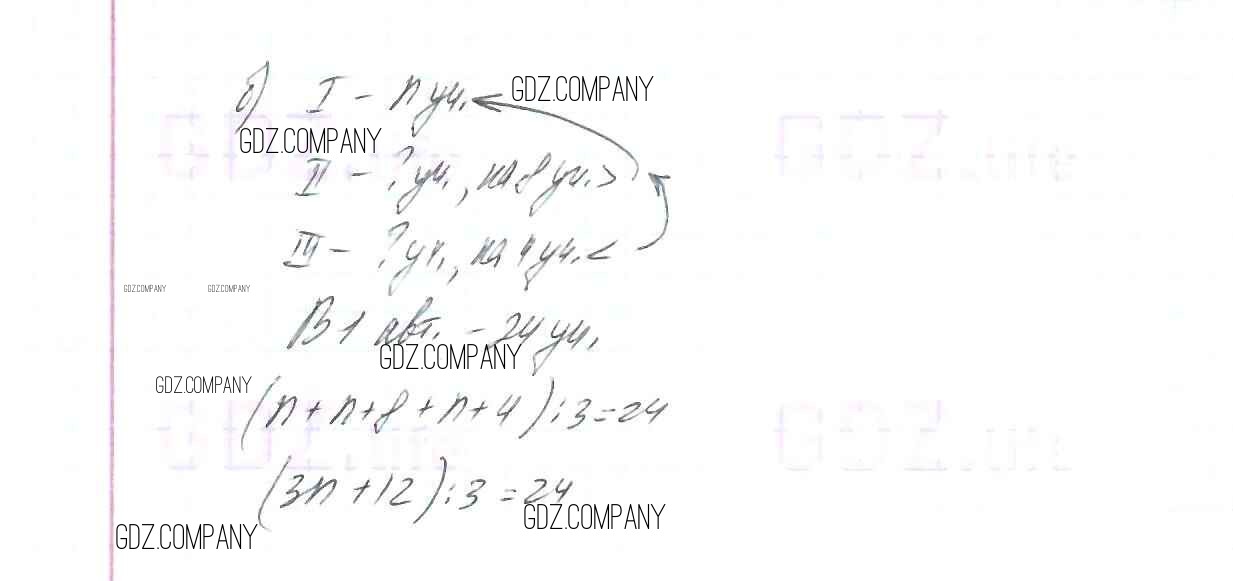 б) I – n уч. GDZ.COMPANY
GDZ.COMPANY
II – ? уч., на 8 уч. >
III – ? уч., на 4 уч. <
GDZ.COMPANY GDZ.COMPANY
В 1 авт. – 24 уч.
GDZ.COMPANY
GDZ.COMPANY
(n + n + 8 + n + 4) : 3 = 24
(3n + 12) : 3 = 24
GDZ.COMPANY
GDZ.COMPANY